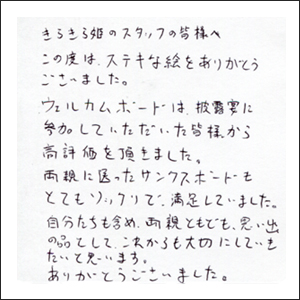 きらきら姫のスタッフの皆様へ
この度は、ステキな絵をありがとう
ございました。
ウェルカムボードは、披露宴に
参加していただいた皆様から
高評価を頂きました。
両親に送ったサンクスボードも
とてもソックリで、満足していました。
自分たちも含め、両親ともども、思い出
の品として、これからも大切にしていき
たいと思います。
ありがとうございました。